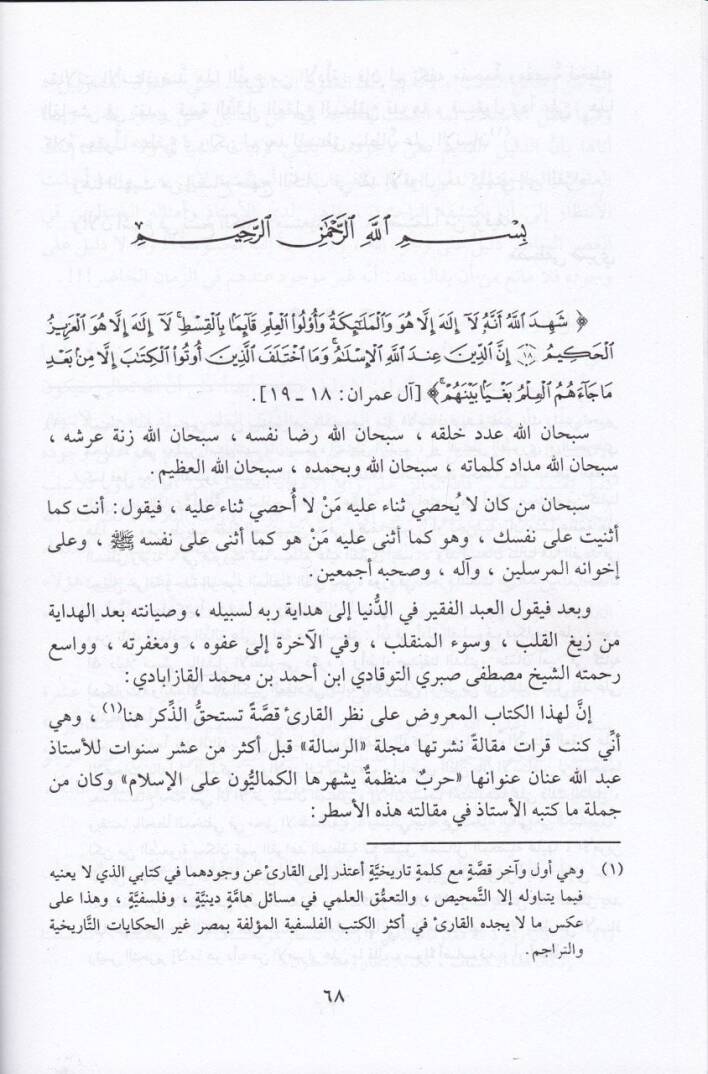 بِسْمِ اللَّهِ الرَّحْمَٰنِ الرَّحِيمِ
﴿ شَهِدَ اللَّهُ أَنَّهُ لَا إِلَٰهَ إِلَّا هُوَ وَالْمَلَائِكَةُ وَأُولُوا الْعِلْمِ قَائِمًا بِالْقِسْطِ لَا إِلَٰهَ إِلَّا هُوَ الْعَزِيزُ
الْحَكِيمُ ۝١٨ إِنَّ الدِّينَ عِندَ اللَّهِ الْإِسْلَامُ وَمَا اخْتَلَفَ الَّذِينَ أُوتُوا الْكِتَابَ إِلَّا مِن بَعْدِ
مَا جَاءَهُمُ الْعِلْمُ بَغْيًا بَيْنَهُمْ﴾ [آل عمران: ١٨ ـ ١٩].
سبحان الله عدد خلقه ، سبحان الله رضا نفسه ، سبحان الله زنة عرشه ،
سبحان الله مداد كلماته ، سبحان الله وبحمده ، سبحان الله العظيم.
سبحان من كان لا يُحصي ثناء عليه مَنْ لا أُحصي ثناء عليه ، فيقول: أنت كما
أثنيت على نفسك ، وهو كما أثنى عليه مَنْ هو كما أثنى على نفسه ﷺ ، وعلى
إخوانه المرسلين ، وآله ، وصحبه أجمعين.
وبعد فيقول العبد الفقير في الدُّنيا إلى هداية ربه لسبيله ، وصيانته بعد الهداية
من زيغ القلب ، وسوء المنقلب ، وفي الآخرة إلى عفوه ، ومغفرته ، وواسع
رحمته الشيخ مصطفى صبري التوقادي ابن أحمد بن محمد القازابادي:
إنَّ لهذا الكتاب المعروض على نظر القارئ قصَّةً تستحقُّ الذِّكر هنا(١) ، وهي
أنَّي كنت قرات مقالةً نشرتها مجلة «الرسالة» قبل أكثر من عشر سنوات للأستاذ
عبد الله عنان عنوانها «حربٌ منظمةٌ يشهرها الكماليُّون على الإسلام» وكان من
جملة ما كتبه الأستاذ في مقالته هذه الأسطر:
(١) وهي أول وآخر قصَّةٍ مع كلمةٍ تاريخيَّةٍ أعتذر إلى القارئ عن وجودهما في كتابي الذي لا يعنيه
فيما يتناوله إلا التَّمحيص ، والتعمُّق العلمي في مسائل هامَّةٍ دينيَّةٍ ، وفلسفيَّةٍ ، وهذا على
عكس ما لا يجده القارئ في أكثر الكتب الفلسفية المؤلفة بمصر غير الحكايات التَّاريخية
والتراجم.
٦٨